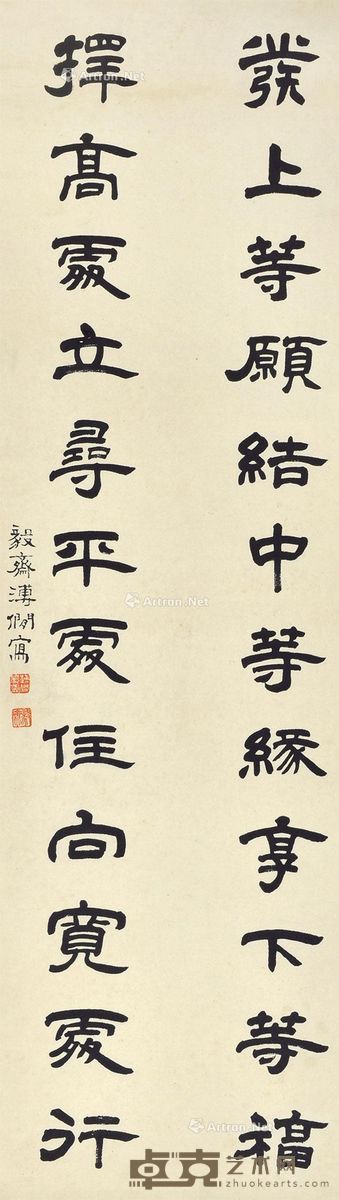 發上等願結中等緣享下等福
擇高處立尋平處住向寬處行
毅齋溥僩寫
Artron.Net
Artron.Net
Artron.Net
Artron.Net
卓克艺术网
zhuokearts.com